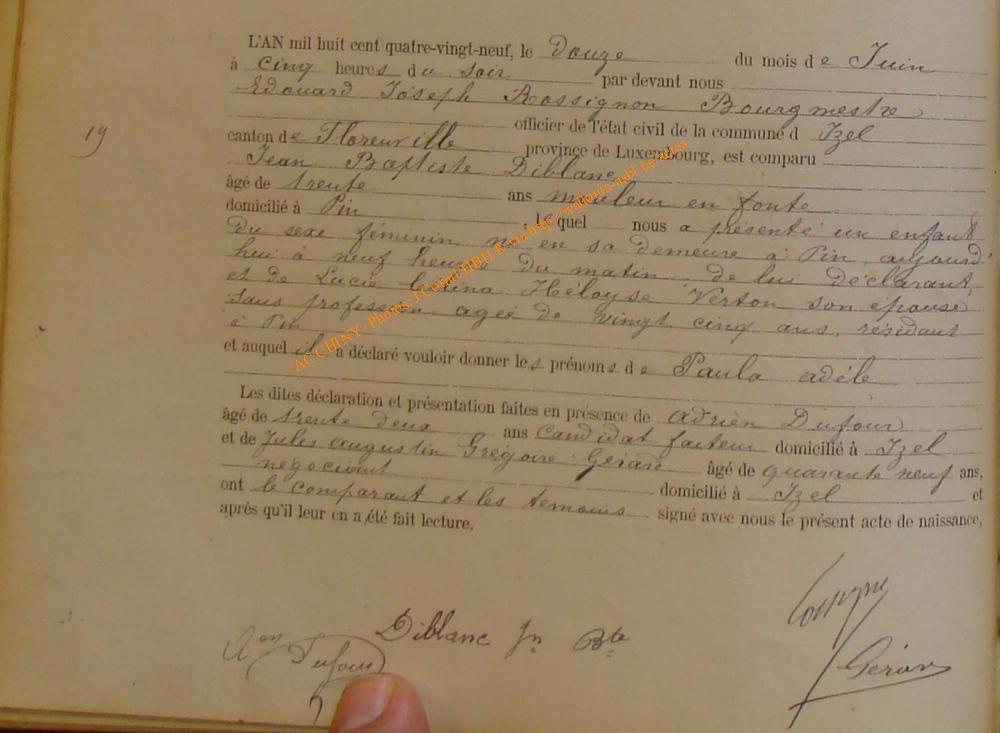 L'AN mil huit cent quatre-vingt-neuf, le Douze du mois de Juin
à Cinq heures du soir par devant nous
Edouard Joseph Rossignon Bourgmestre
officier de l'état civil de la commune d Izel
19
canton de Florenville province de Luxembourg, est comparu
Jean Baptiste Diblanc
âgé de trente ans mouleur en fonte
domicilié à Pin lequel nous a présenté un enfant
du sexe féminin né en sa demeure à Pin, aujourd'
hui à neuf heures du matin de lui déclarant,
et de Lucie Héloyse Verton son épouse
sans profession agée de vingt cinq ans, résidant
à Pin
et auquel il a déclaré vouloir donner les prénoms de Paula adèle
Les dites déclaration et présentation faites en présence de adrien Dufour
âgé de trente deux ans candidat facteur domicilié à Izel
et de Jules augustin Grégoire Gérard âgé de quarante neuf ans,
négociant domicilié à Izel et
ont le comparant et les temoins signé avec nous le présent acte de naissance,
après qu'il leur en a été fait lecture.
AC CHINY - Photos J Cornet HBH © via http://
Diblanc Jn Bte
Aen Dufour
Gérard